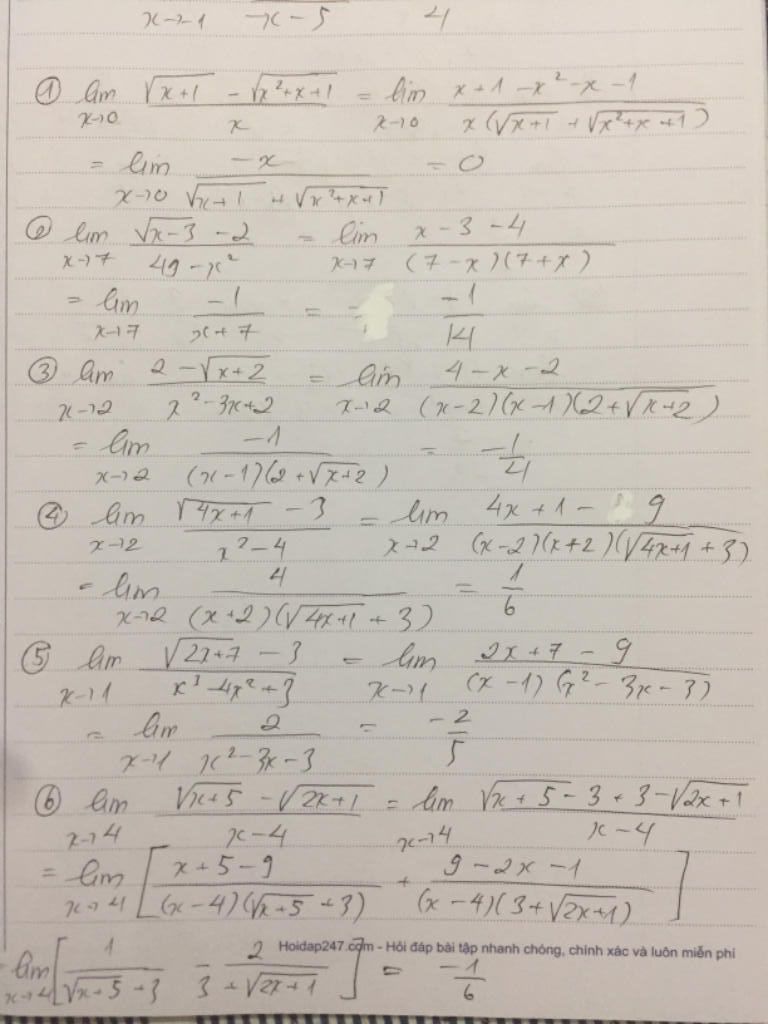 x→-1 -x-5 4
① lim x→0 (√(x+1) - √(x²+x+1))/x = lim x→0 (x+1-x²-x-1)/(x(√(x+1) + √(x²+x+1)))
= lim x→0 (-x)/(√(x+1) + √(x²+x+1)) = 0
② lim x→7 (√(x-3) - 2)/(49-x²) = lim x→7 (x-3-4)/((7-x)(7+x))
= lim x→7 (-1)/(x+7) = (-1)/14
③ lim x→2 (2-√(x+2))/(x²-3x+2) = lim x→2 (4-x-2)/((x-2)(x-1)(2+√(x+2)))
= lim x→2 (-1)/((x-1)(2+√(x+2))) = -1/4
④ lim x→2 (√(4x+1) - 3)/(x²-4) = lim x→2 (4x+1-9)/((x-2)(x+2)(√(4x+1) + 3))
= lim x→2 4/((x+2)(√(4x+1) + 3)) = 1/6
⑤ lim x→1 (√(2x+7) - 3)/(x³-4x²+3) = lim x→1 (2x+7-9)/((x-1)(x²-3x-3))
= lim x→1 2/(x²-3x-3) = -2/5
⑥ lim x→4 (√(x+5) - √(2x+1))/(x-4) = lim x→4 (√(x+5) - 3 + 3 - √(2x+1))/(x-4)
= lim x→4 [(x+5-9)/((x-4)(√(x+5) + 3)) + (9-2x-1)/((x-4)(3+√(2x+1)))]
Hoidap247.com - Hỏi đáp bài tập nhanh chóng, chính xác và luôn miễn phí
= lim x→4 [1/(√(x+5) + 3) - 2/(3+√(2x+1))] = -1/6